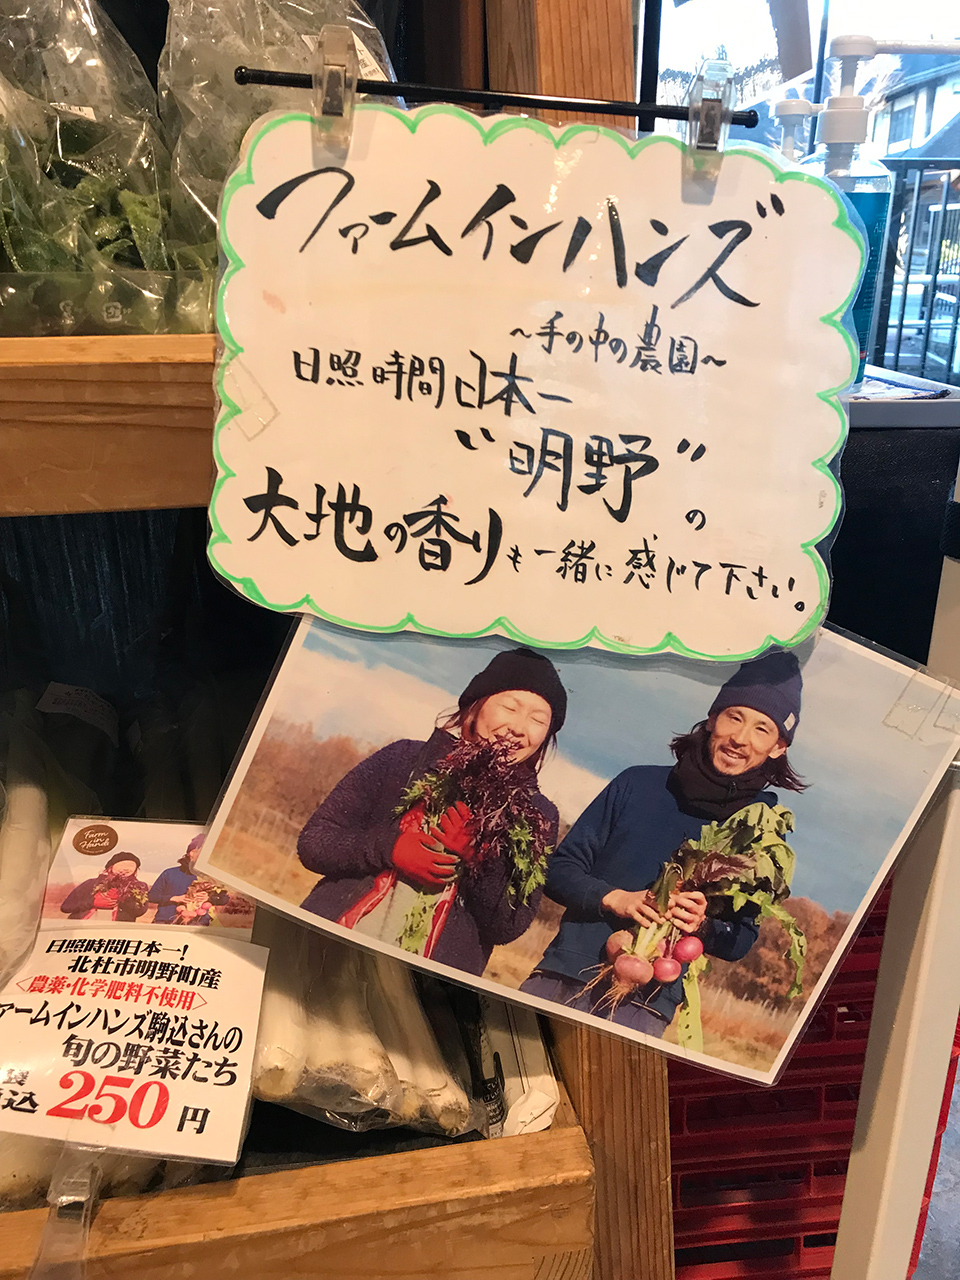 ファームインハンズ
〜手の中の農園〜
日照時間日本一
“明野”の
大地の香りも一緒に感じて下さい。
Farm
in
Hands
日照時間日本一!
北杜市明野町産
〈農薬・化学肥料不使用〉
ァームインハンズ駒込さんの
旬の野菜たち
袋
込 250円